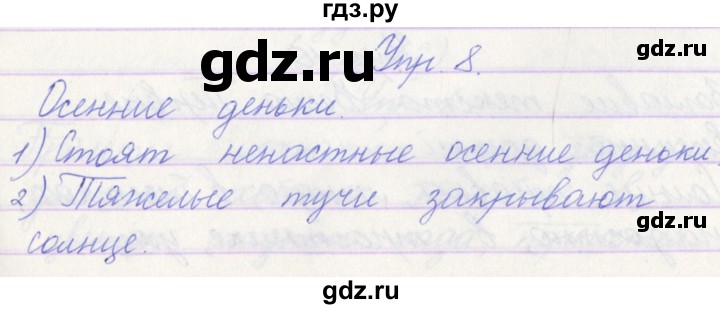 гдз.ру
gdz.ru
Упр. 8.
Осенние деньки.
1) Стоят ненастные осенние деньки.
2) Тяжелые тучи закрывают
солнце.
gdz.ru